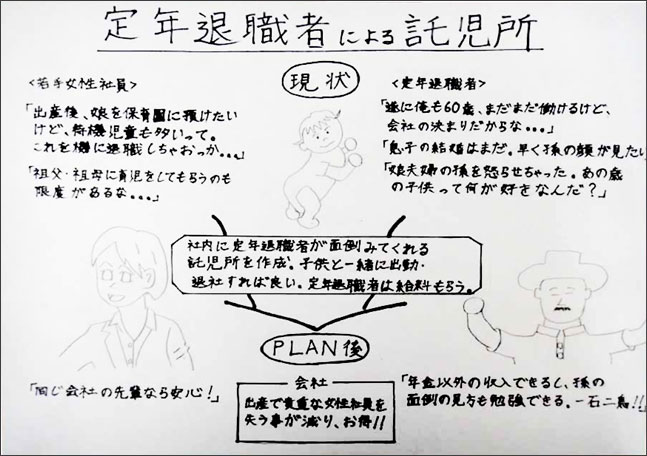 定年退職者による託児所
現状
<若手女性社員>
「出産後、娘を保育園に預けたい
けど、待機児童も多いって。
これを機に退職しちゃおっか...」
「祖父・祖母に育児をしてもらうのも
限度があるな...」
<定年退職者>
「遂に俺も60歳、まだまだ働けるけど、
会社の決まりだからな...」
「息子の結婚はまだ。早く孫の顔が見たい
「娘夫婦の孫を怒らせちゃった。あの歳
の子供って何が好きなんだ?」
社内に定年退職者が面倒みてくれる
託児所を作成。子供と一緒に出勤・
退社すれば良い。定年退職者は給料もらう。
PLAN後
「同じ会社の先輩なら安心!」
会社
出産で貴重な女性社員を
失う事が減り、お得!!
「年金以外の収入できるし、孫の
面倒の見方も勉強できる。一石二鳥!!